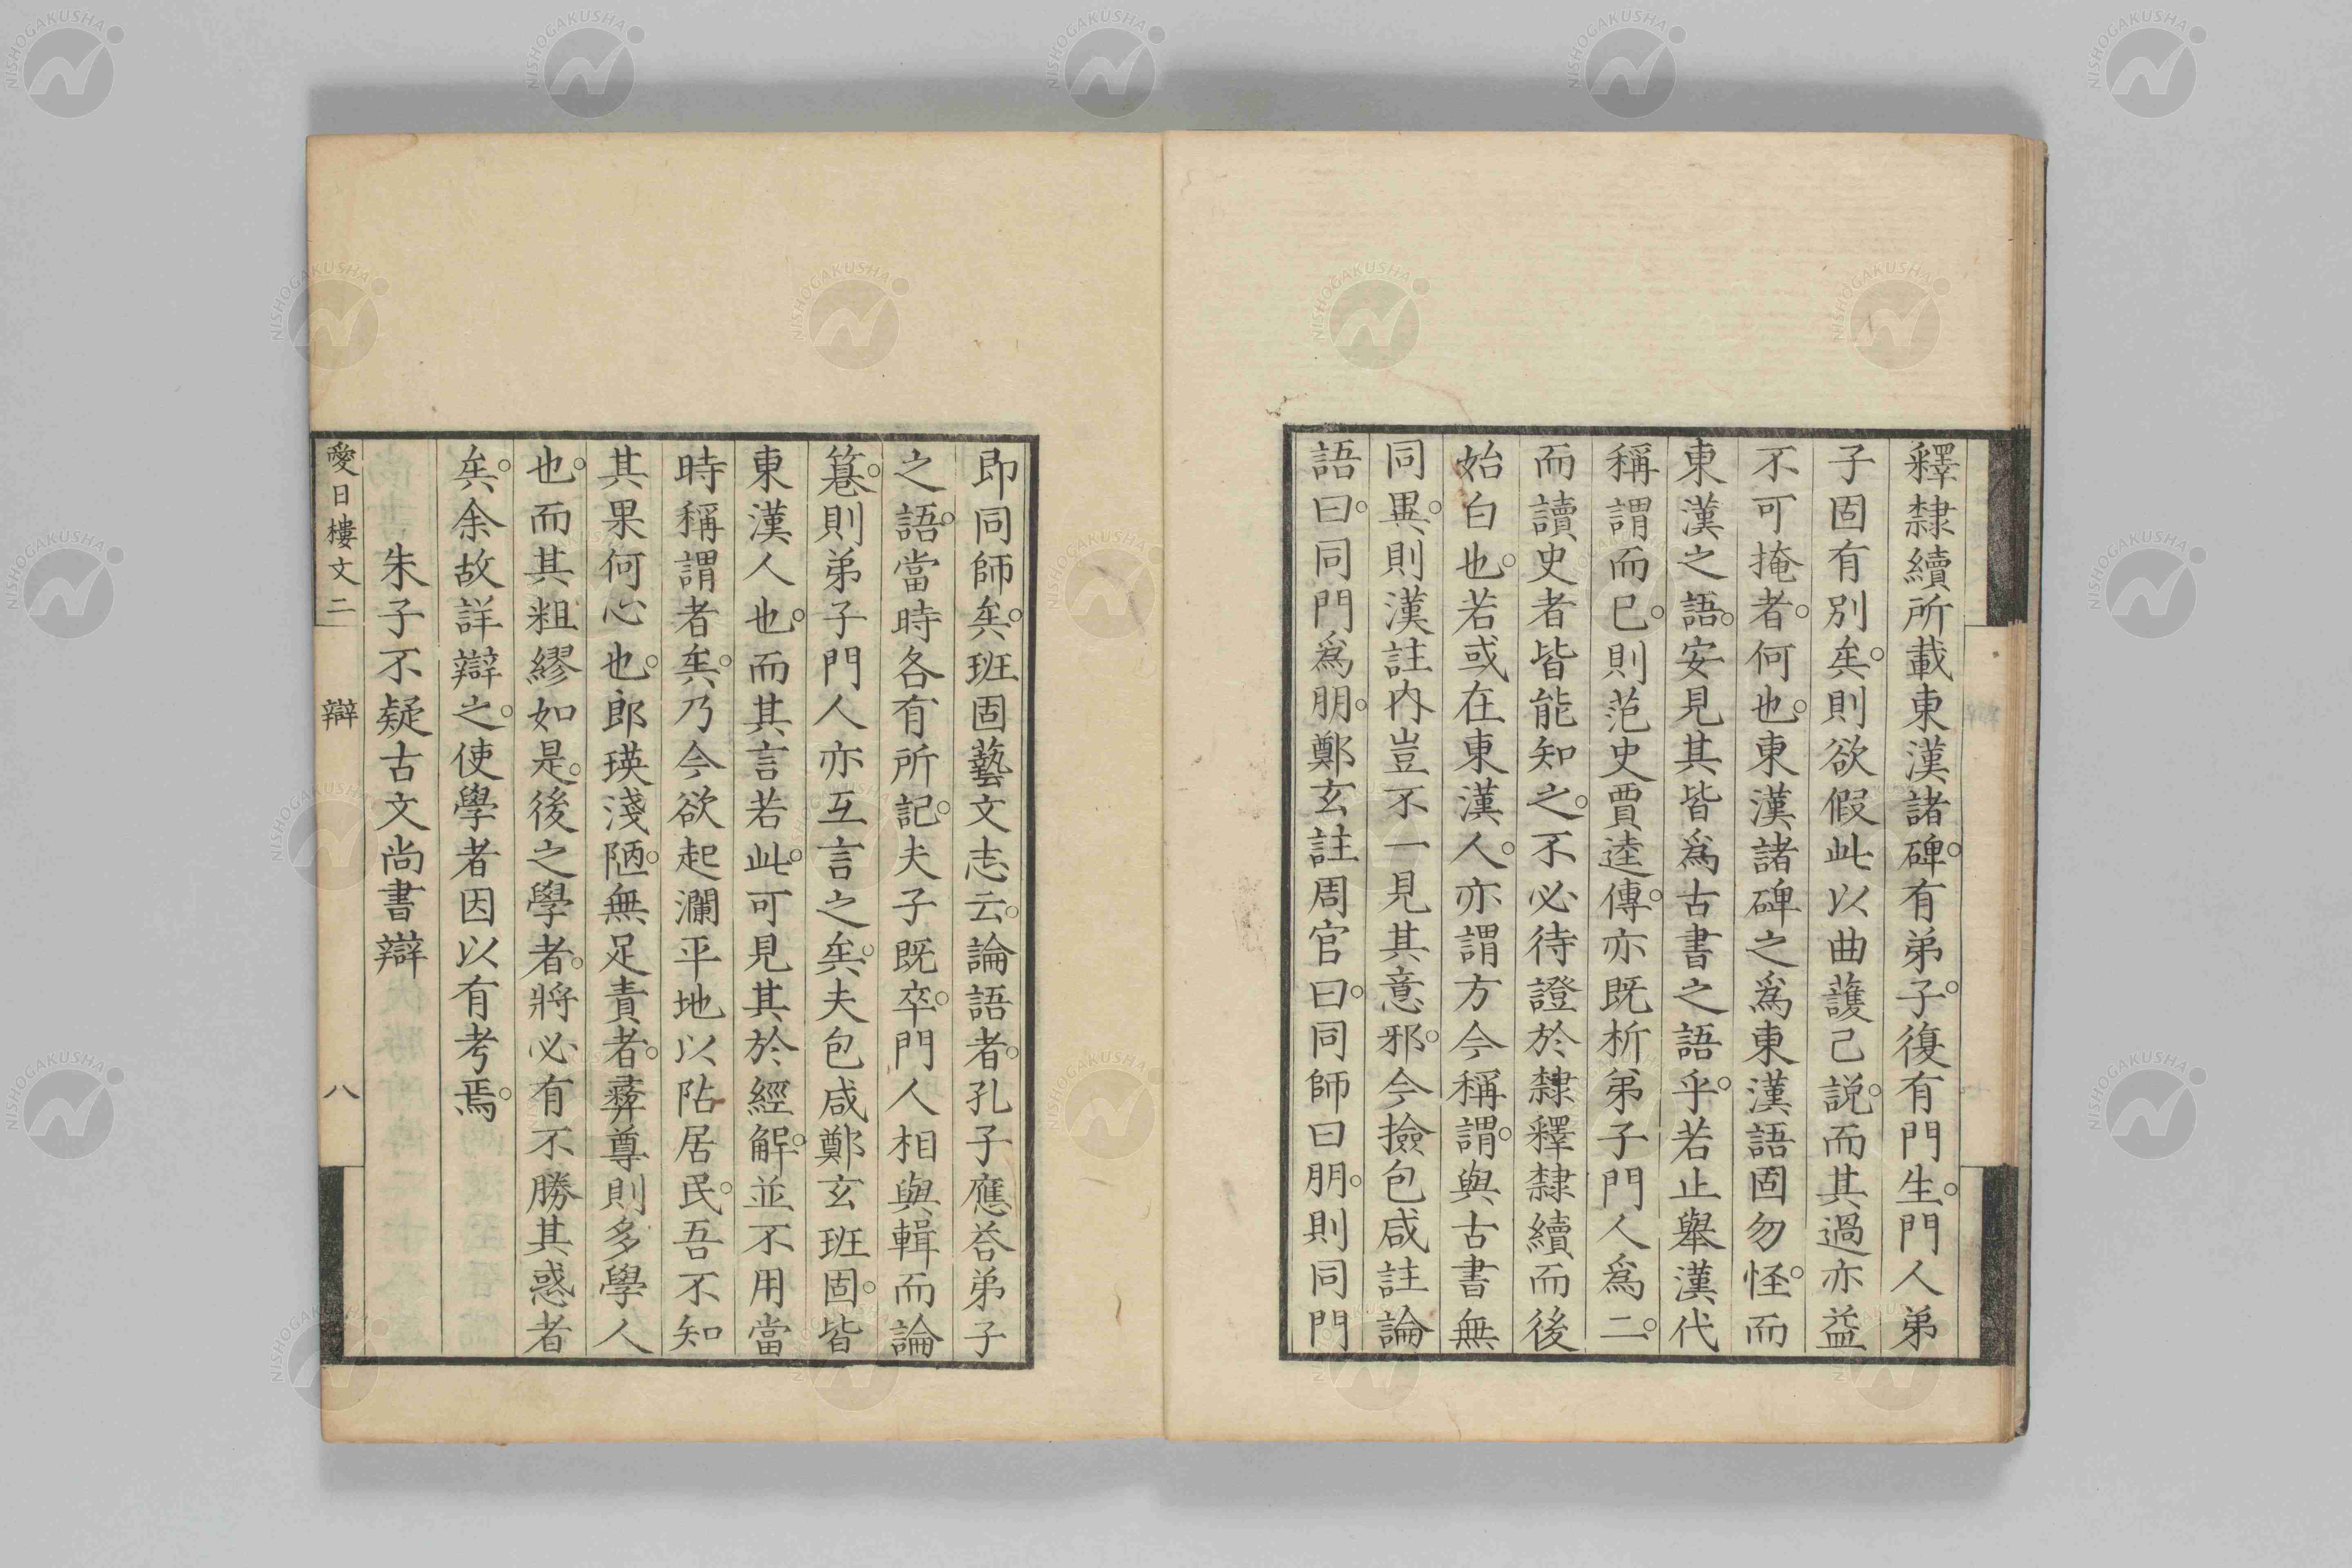 釋隷續所載東漢諸碑。有弟子。復有門生。門人弟
子固有別矣。則欲假此以曲護己説。而其過亦益
不可掩者。何也。東漢諸碑之爲東漢語固勿怪。而
東漢之語。安見其皆爲古書之語乎。若止舉漢代
稱謂而已。則范史賈逵傳。亦既析弟子門人爲二。
而讀史者皆能知之。不必待證於隷釋隷續而後
始白也。若或在東漢人。亦謂方今稱謂。與古書無
同異。則漢註内豈不一見其意邪。今撿包咸註論
語曰。同門爲朋。鄭玄註周官曰。同師曰朋。則同門
即同師矣。班固藝文志云。論語者。孔子應荅弟子
之語。當時各有所記。夫子既卒。門人相與輯而論
篹。則弟子門人亦互言之矣。夫包咸鄭玄班固。皆
東漢人也。而其言若此。可見其於經解。並不用當
時稱謂者矣。乃今欲起瀾平地以阽居民。吾不知
其果何心也。郎瑛淺陋。無足責者。彝尊則多學人
也。而其粗繆如是。後之學者。將必有不勝其惑者
矣。余故詳辯之。使學者因以有考焉。
朱子不疑古文尚書辯
愛日樓文二
辯
八
NISHOGAKUSHA